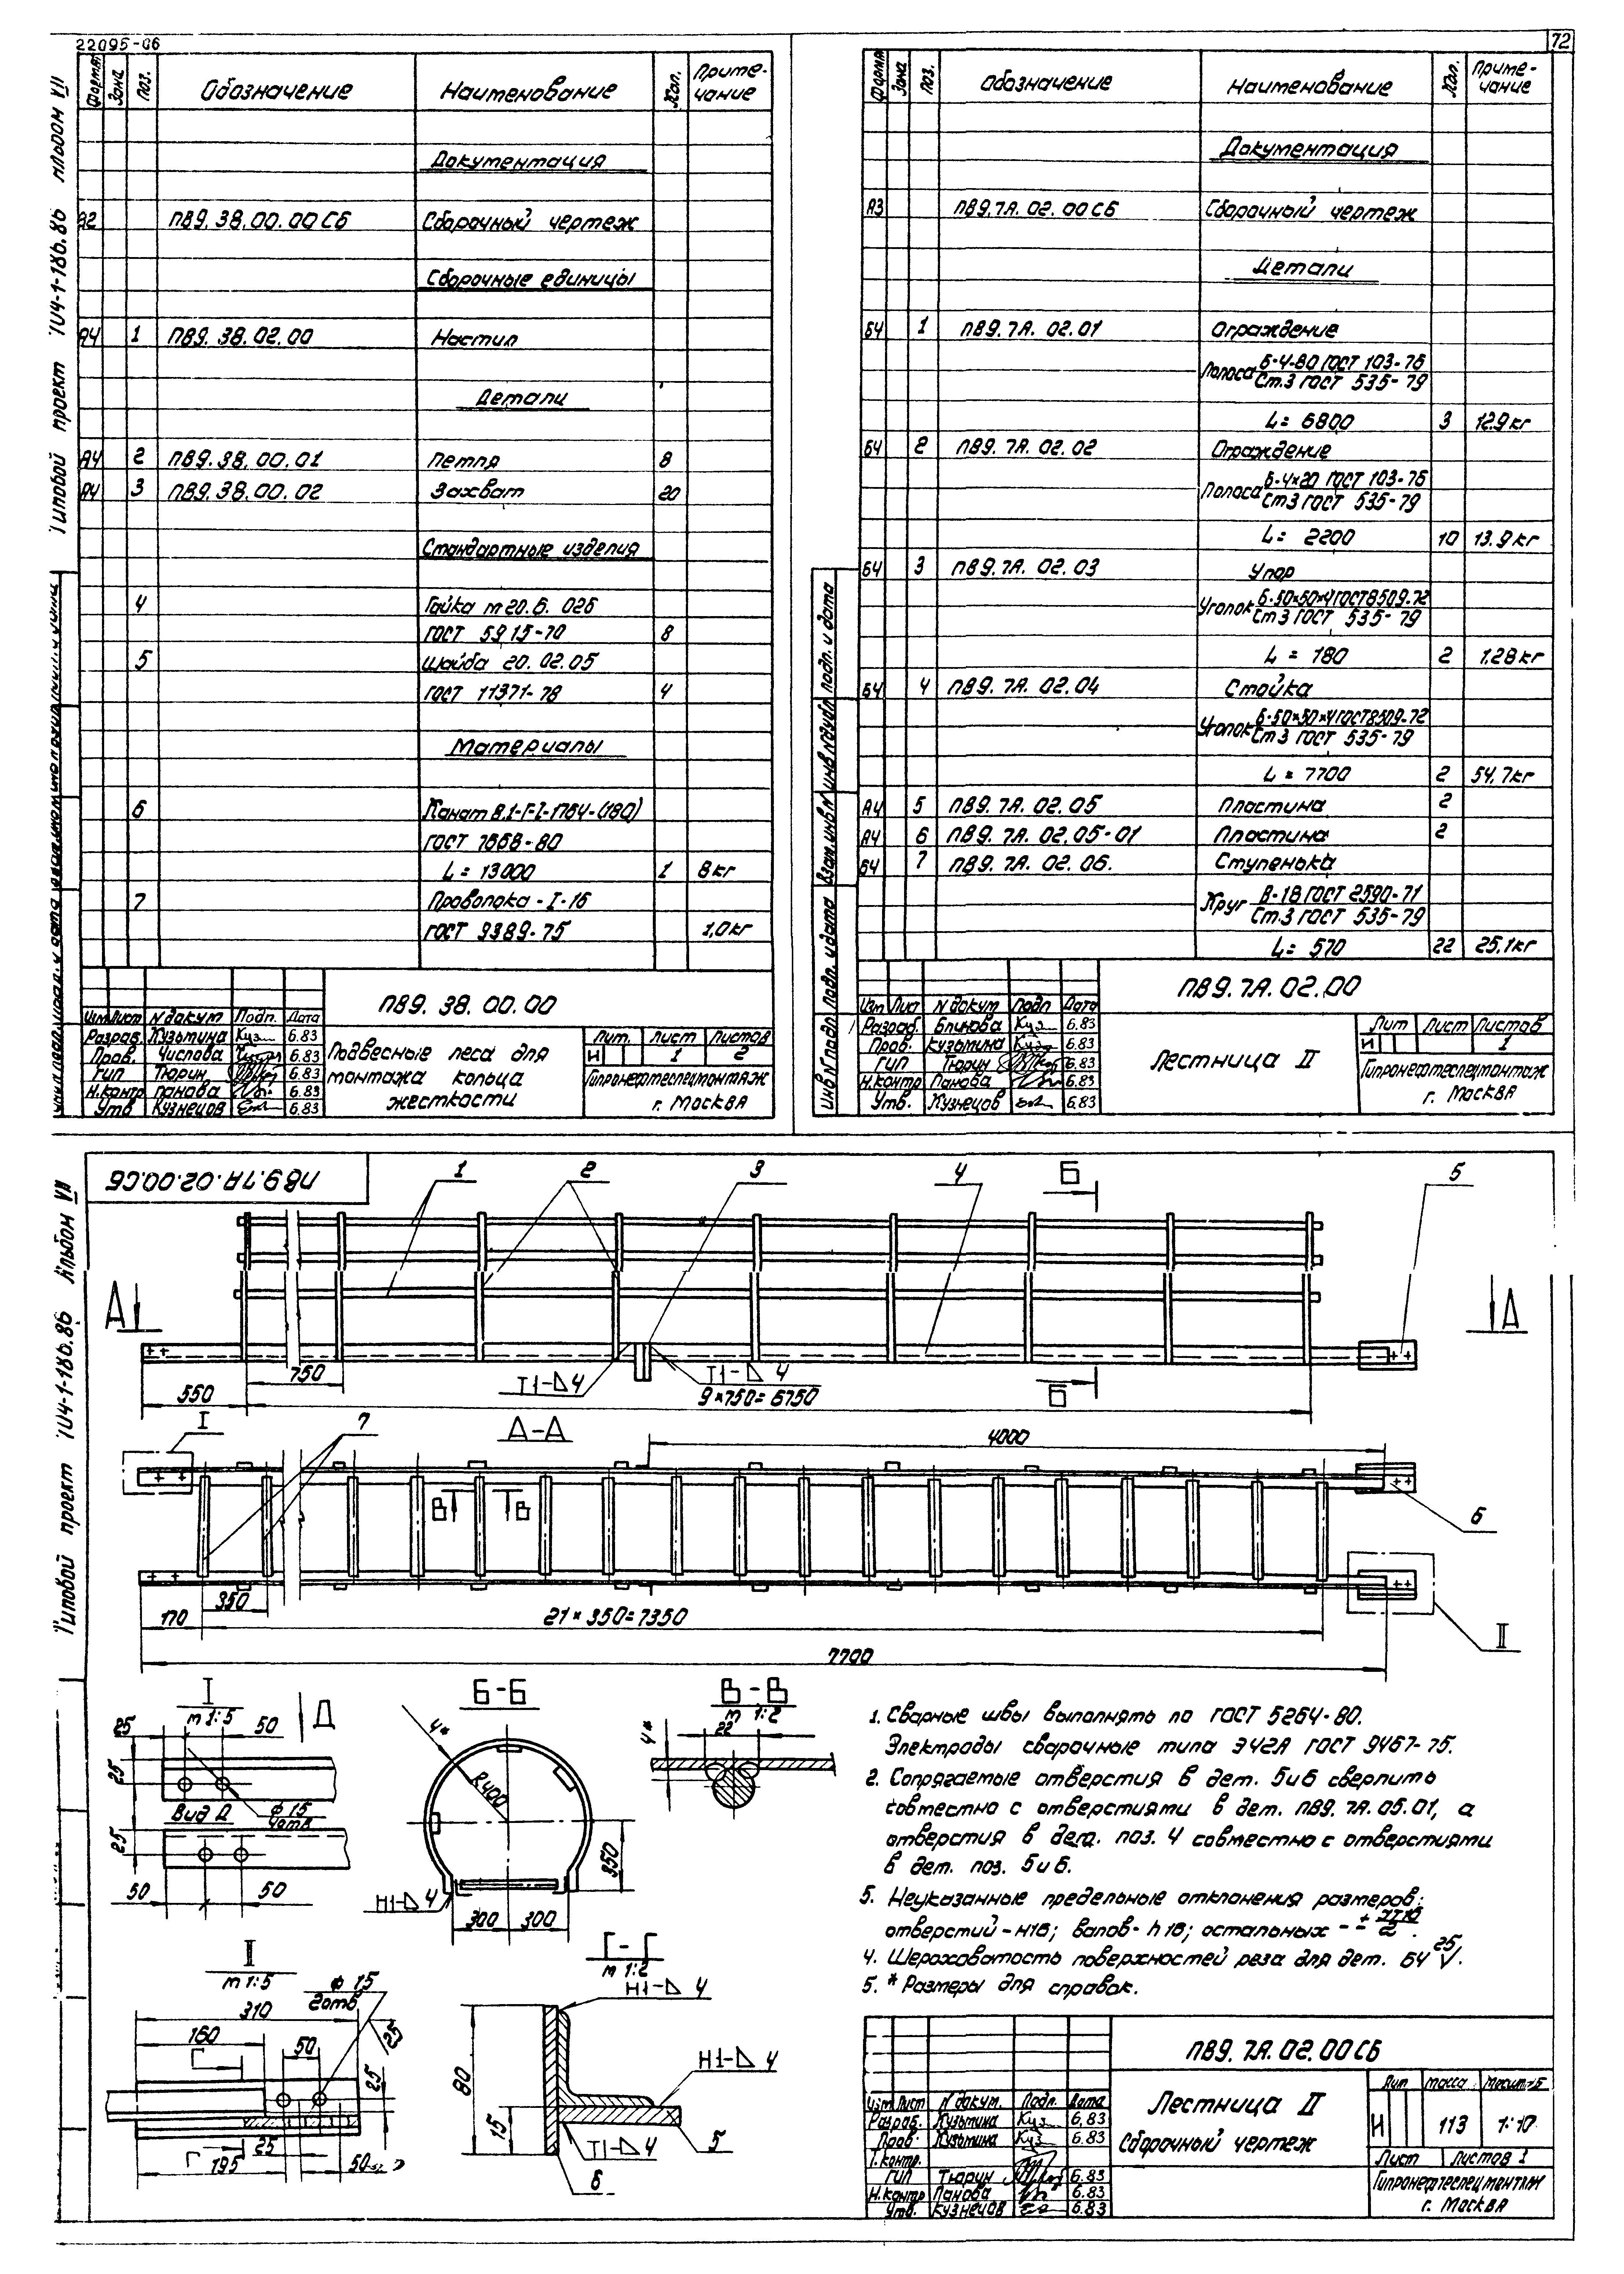 22095-06
72
Типовой проект 704-1-186.86 Альбом VII
Формат Зона Поз. Обозначение Наименование Кол. Примечание
Документация
А2 П89.38.00.00СБ Сборочный чертеж
Сборочные единицы
А4 1 П89.38.02.00 Настил
Детали
А4 2 П89.38.00.01 Петля 8
А4 3 П89.38.00.02 Захват 20
Стандартные изделия
4 Гайка М20.6.026
ГОСТ 5915-70 8
5 Шайба 20.02.05
ГОСТ 11371-78 4
Материалы
6 Канат 8.1-Г-I-1764-(180)
ГОСТ 7668-80
L=13000 1 8кг
7 Проволока-I-16
ГОСТ 9389-75 1,0кг
П89.38.00.00
Изм Лист N докум Подп. Дата
Разраб. Кузьмина 6.83
Пров. Числова 6.83
ГИП Тюрин 6.83
Н.контр Панова 6.83
Утв Кузнецов 6.83
Подвесные леса для
монтажа кольца
жесткости
Лит. Лист Листов
И 1 2
Гипронефтеспецмонтаж
г. Москва
Форма Зона Поз. Обозначение Наименование Кол. Примечание
Документация
А3 П89.7А.02.00СБ Сборочный чертеж
Детали
Б4 1 П89.7А.02.01 Ограждение
Полоса Б-4-80 ГОСТ 103-76
Ст.3 ГОСТ 535-79
L=6800 3 12.9кг
Б4 2 П89.7А.02.02 Ограждение
Полоса Б-4×20 ГОСТ 103-76
Ст3 ГОСТ 535-79
L=2200 10 13.9кг
Б4 3 П89.7А.02.03 Упор
Уголок Б-50×50×4 ГОСТ8509-72
Ст3 ГОСТ 535-79
L=180 2 1.28кг
Б4 4 П89.7А.02.04 Стойка
Уголок Б-50×50×4 ГОСТ8509-72
Ст3 ГОСТ 535-79
L=7700 2 54.7кг
А4 5 П89.7А.02.05 Пластина 2
А4 6 П89.7А.02.05-01 Пластина 2
Б4 7 П89.7А.02.06. Ступенька
Круг В-18 ГОСТ 2590-71
Ст.3 ГОСТ 535-79
L=570 22 25,1кг
Инв N подл Подп. и дата Взам.инв N Инв N дубл Подп. и дата
П89.7А.02.00
Изм Лист N докум Подп Дата
Разраб. Блинова 6.83
Пров. Кузьмина 6.83
ГИП Тюрин 6.83
Н.контр Панова 6.83
Утв. Кузнецов 6.83
Лестница II
Лит Лист Листов
И 1
Гипронефтеспецмонтаж
г. Москва
Типовой проект 704-1-186.86 Альбом VII
П89.7А.02.00.СБ
1 2 3 4 Б 5
А А
750 Т1-◺4 Т1-◺4 Б
550 9×750=6750
I 7 А-А 4000
В В 6
350
170 21×350=7350
II
7700
I
М 1:5
Д
25 50
25
Вид Д
ф15
4отв
25
50 50
Б-Б
4*
R400
350
Н1-◺4
300 300
В-В
М 1:2
22
4*
II
М 1:5
ф15
2отв
310
160
50
25
25
Г
Г
25
195
50
Г-Г
М 1:2
Н1-◺4
Н1-◺4
80
15
Т1-◺4
5
6
1. Сварные швы выполнять по ГОСТ 5264-80.
Электроды сварочные типа Э42А ГОСТ 9467-75.
2. Сопрягаемые отверстия в дет. 5и6 сверлить
совместно с отверстиями в дет. П89.7А.05.01, а
отверстия в дет. поз. 4 совместно с отверстиями
в дет. поз. 5и6.
5. Неуказанные предельные отклонения размеров:
отверстий-Н16; валов-h16; остальных - ±
4. Шероховатость поверхностей реза для дет. Б4 25√.
5. * Размеры для справок.
П89.7А.02.00СБ
Изм Лист N докум. Подп. Дата
Разраб. Кузьмина 6.83
Пров. Кузьмина 6.83
Т.контр.
ГИП Тюрин 6.83
Н.контр Панова 6.83
Утв. Кузнецов 6.83
Лестница II
Сборочный чертеж
Лит Масса Масштаб
И 113 1:10
Лист Листов 1
Гипронефтеспецмонтаж
г. Москва